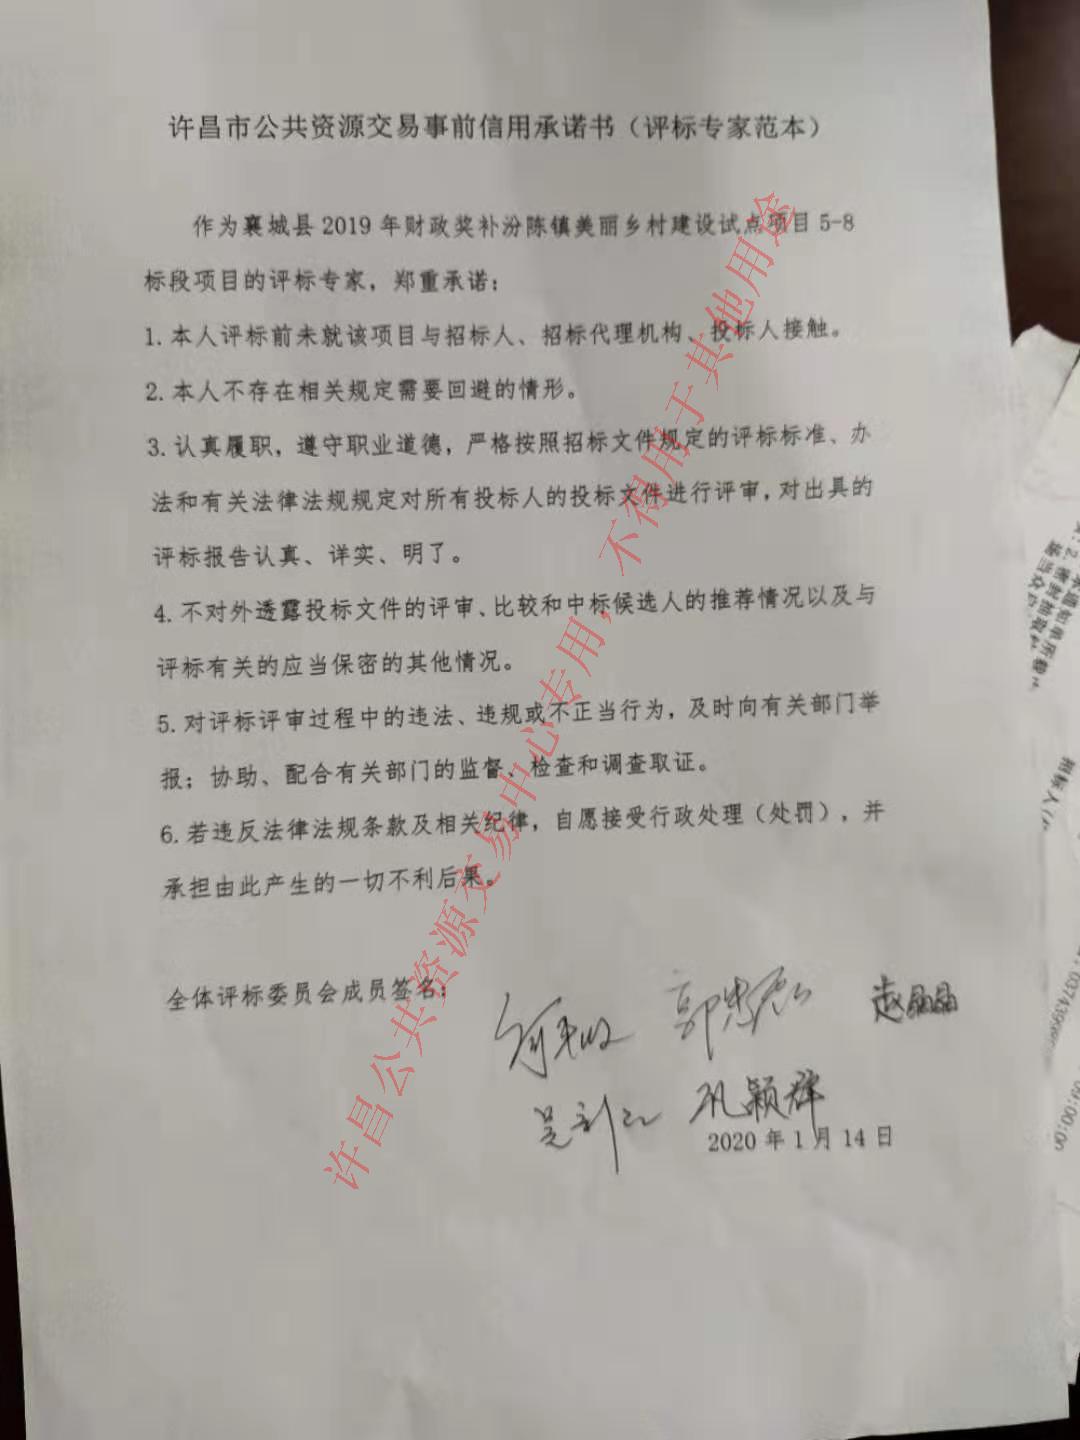 许昌市公共资源交易事前信用承诺书（评标专家范本）
作为襄城县 2019 年财政奖补汾陈镇美丽乡村建设试点项目 5-8
标段项目的评标专家，郑重承诺：
1. 本人评标前未就该项目与招标人、招标代理机构、投标人接触。
2. 本人不存在相关规定需要回避的情形。
3. 认真履职，遵守职业道德，严格按照招标文件规定的评标标准、办
法和有关法律法规规定对所有投标人的投标文件进行评审，对出具的
评标报告认真、详实、明了。
4. 不对外透露投标文件的评审、比较和中标候选人的推荐情况以及与
评标有关的应当保密的其他情况。
5. 对评标评审过程中的违法、违规或不正当行为，及时向有关部门举
报；协助、配合有关部门的监督、检查和调查取证。
6. 若违反法律法规条款及相关纪律，自愿接受行政处理（处罚），并
承担由此产生的一切不利后果。
全体评标委员会成员签名：
赵晶晶
巩颖群
2020 年 1 月 14 日
许昌公共资源交易中心专用，不得用于其他用途
招标人